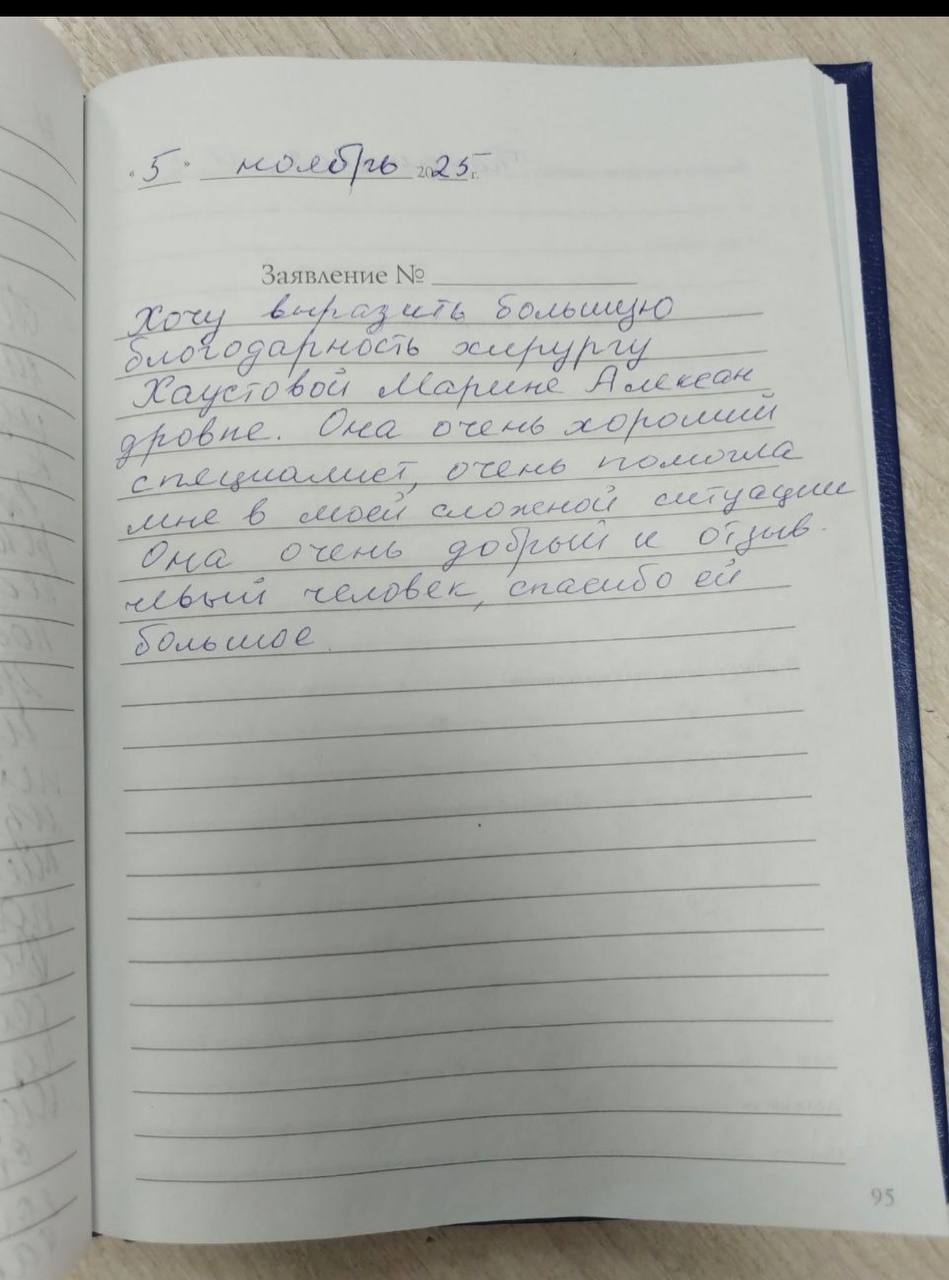 "5" ноябрь 2025 г.
Заявление № ____
Хочу выразить большую
благодарность хирургу
Хаустовой Марине Алексан
дровне. Она очень хороший
специалист, очень помогла
мне в моей сложной ситуации
Она очень добрый и отзыв-
чивый человек, спасибо ей
большое.
95